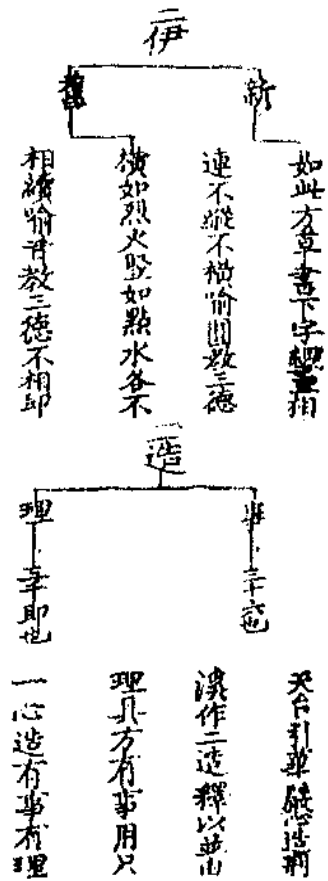 二伊
新
舊
如此方草書下字細畫相
連不縱不橫喻圓教三德
橫如烈火豎如點水各不
相續喻昔教三德不相即
二造
事
理
即也
天台引華嚴心造荊
溪作二造釋以並由
理具方有事用只
一心造有事有理